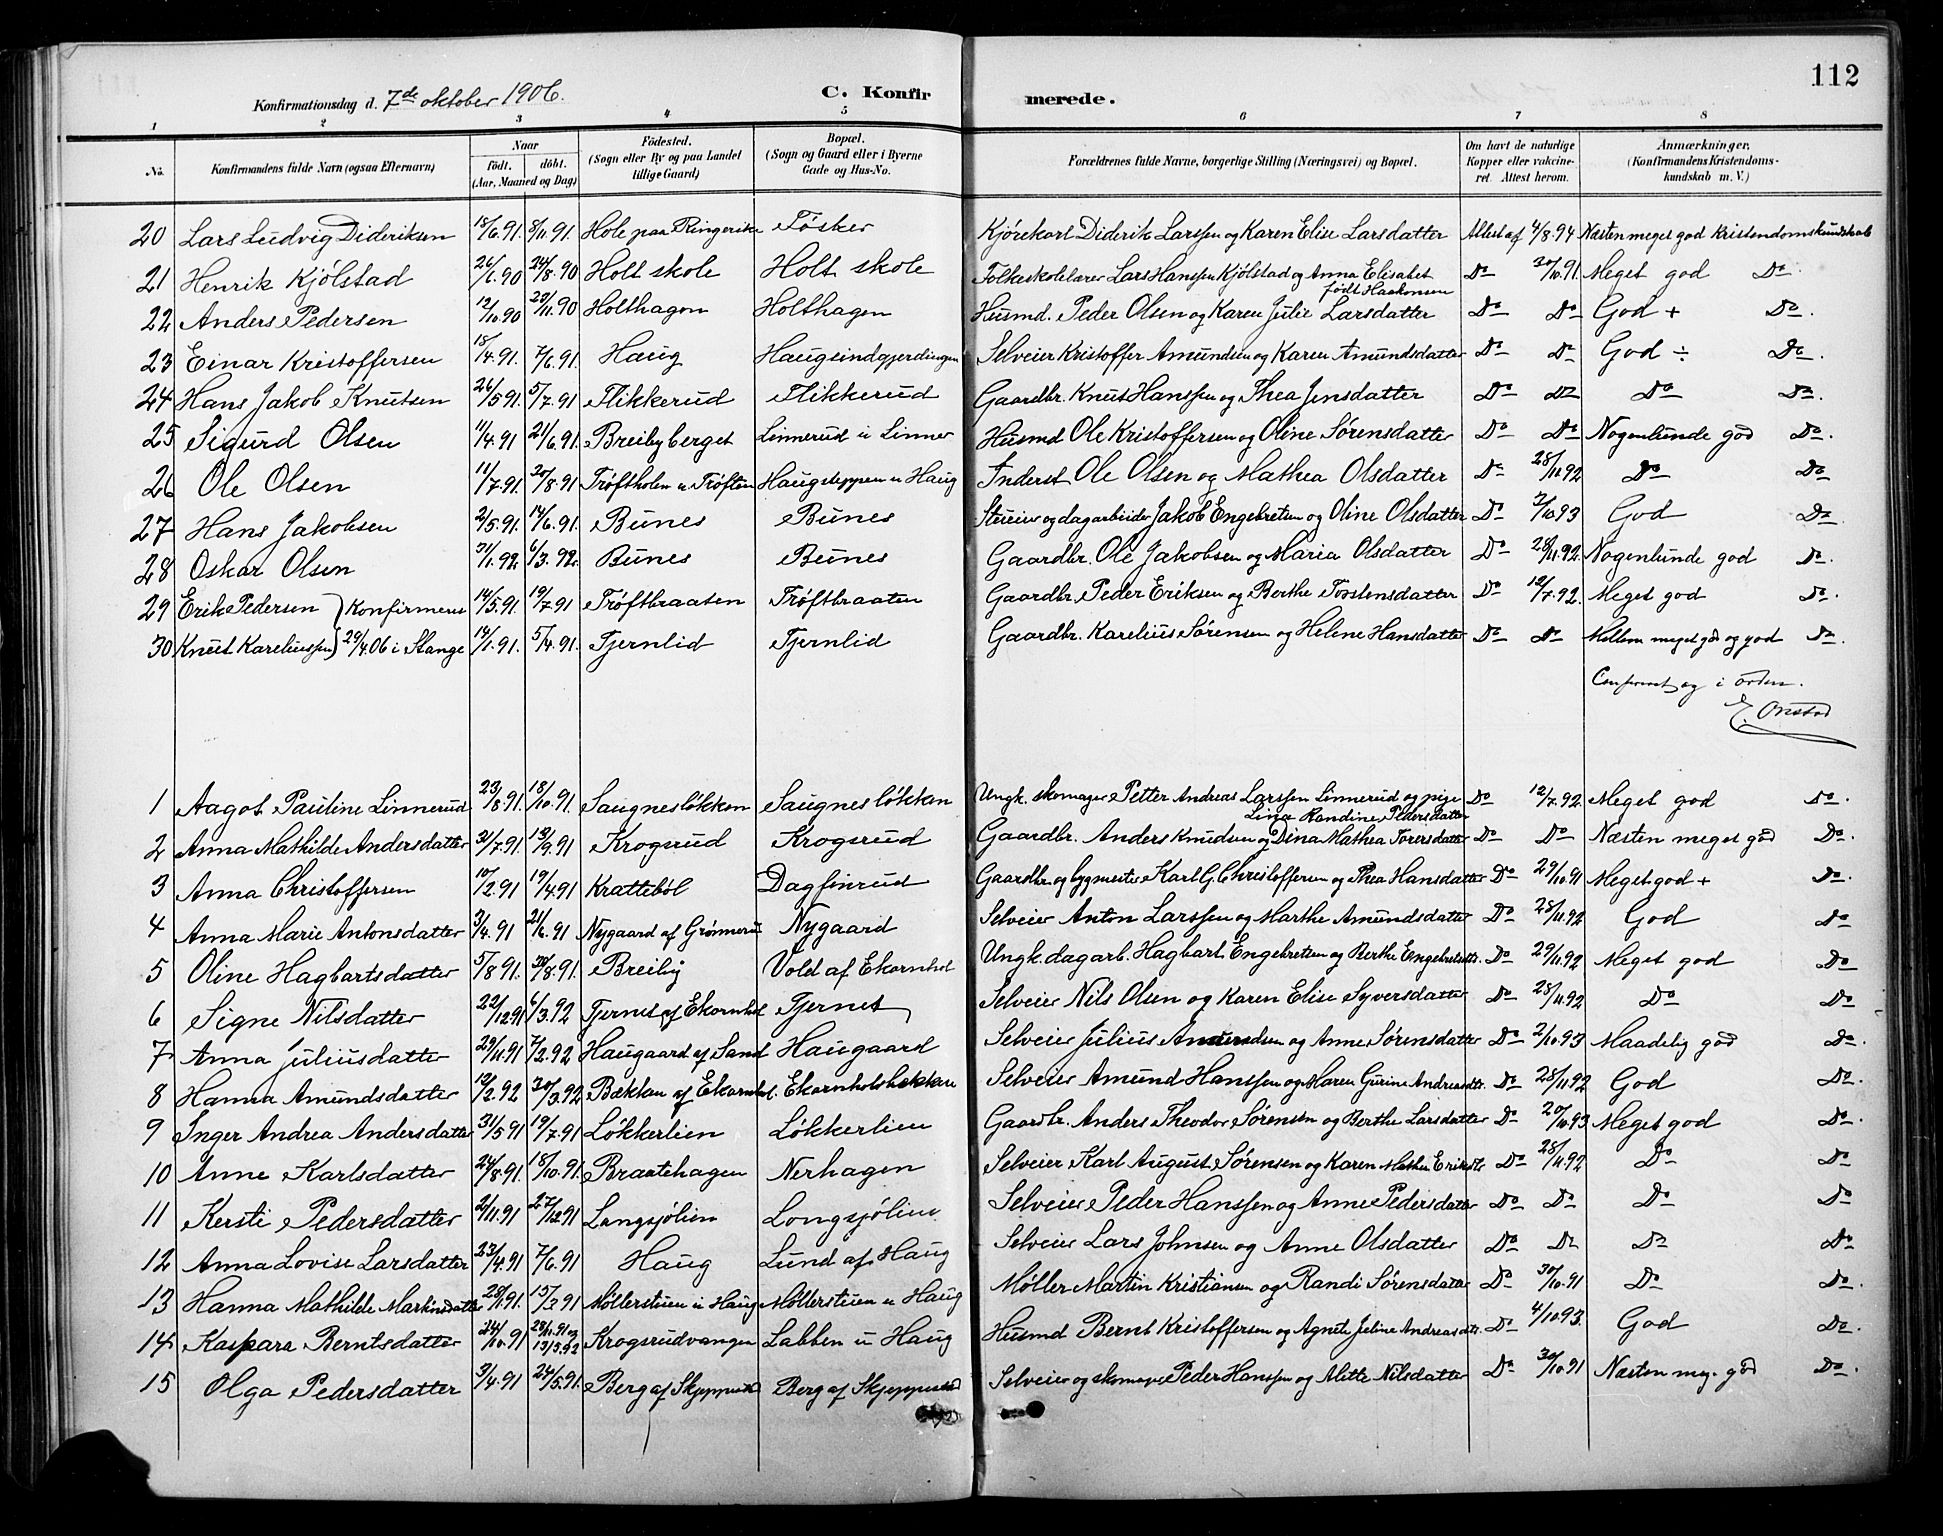 112
Konfirmationsdag d. 7de oktober 1906. C. Konfirmerede.
1 2 3 4 5 6 7 8
No. Konfirmandens fulde Navn (ogsaa Efternavn) Naar født. døbt. (Aar, Maaned og Dag) Fødested. (Sogn eller By og paa Landet tillige Gaard) Bopæl. (Sogn og Gaard eller i Byerne Gade og Hus-No. Forældrenes fulde Navne, borgerlige Stilling (Næringsvei) og Bopæl. Om havt de naturlige Kopper eller vakcineret. Attest herom. Anmærkninger. (Konfirmandens Kristendomskundskab m. V.)
20 Lars Ludvig Dideriksen 15/6.91. 8/11.91. Hole paa Ringerike Fösker Kjørekarl Diderik Larssen og Karen Elise Larsdatter Attest af 4/8.94 Næsten meget god Kristendomskundskab
21 Henrik Kjölstad 26/6.90 24/8.90 Holt skole Holt skole Folkeskolelærer Lars Hanssen Kjölstad og Anna Elisabet født Haakonsen Do 30/10.91 Meget god Do.
22 Anders Pedersen 12/10.90 23/11.90 Holthagen Holthagen Husmd. Peder Olsen og Karen Julie Larsdatter Do Do God + Do.
23 Einar Kristoffersen 18/4.91. 7/6.91. Haug Haugsindgjerdingen Selveier Kristoffer Amundsen og Karen Amundsdatter Do Do God ÷ Do.
24 Hans Jakob Knutsen 26/5 91. 5/7.91 Flikkerud Flikkerud Gaardbr. Knut Hanssen og Thea Jensdatter Do Do Do Do.
25 Sigurd Olsen 11/4.91 21/6.91. Breibyberget Linnerud u Linner Husmd Ole Kristoffersen og Oline Sørensdatter Do Do Nogenlunde god Do.
26 Ole Olsen 11/7.91. 30/8.91 Trøftholen u Trøften Haugsteppen u Haug Inderst Ole Olsen og Mathea Olsdatter Do 28/11.92 Do Do
27 Hans Jakobsen 2/5.91. 14/6.91. Bunes Bunes Stueeier og dagarbeider Jakob Engebretsen og Oline Olsdatter Do 2/10.93 God Do
28 Oskar Olsen 31/1.92. 6/3.92. Bunes Bunes Gaardbr. Ole Jakobsen og Maria Olsdatter Do 28/11.92. Nogenlunde god Do.
29 Erik Pedersen } Konfirmeret 14/5.91. 19/7.91 Trøftbraaten Trøftbraaten Gaardbr. Peder Eriksen og Berthe Torstensdatter Do 12/7.92. Meget god Do.
30 Knut Kareliussen } 29/4.06 i Stange 14/1.91. 5/4.91. Tjernlid Tjernlid Gaardbr. Karelius Sørensen og Helene Hansdatter Do Do Mellem meget god og god Do.
i orden.
E. Onstad
1 Aagot Pauline Linnerud 23/8.91. 18/10.91. Saugnesløkken Saugnesløkken Ungk. skomager Petter Andreas Larssen Linnerud og pige Lina Randine Pedersdatter Do 12/7.92 Meget god Do.
2 Anna Mathilde Andersdatter 31/7.91. 13/9.91 Krogsrud Krogsrud Gaardbr. Anders Knudsen og Dina Mathea Toversdatter Do Do Næsten meget god Do.
3 Anna Christoffersen 10/2.91 19/4.91 Kratteböl Dagfinrud Gaardbr. og bygmester Karl G. Christoffersen og Thea Hansdatter Do 29/10.91 Meget god + Do.
4 Anna Marie Antonsdatter 3/4.91 21/6.91 Nygaard af Grønnerud Nygaard Selveier Anton Larssen og Marthe Amundsdatter Do 28/11.92 God Do
5 Oline Hagbartsdatter 5/8 91. 30/8.91. Breiby Vold af Ekornhol Ungk. dagarb. Hagbart Engebretsen og Berthe Engebretsdtr. Do 29/11.92 Meget god Do
6 Signe Nilsdatter 22/12 91 6/3.92 Tjernet af Ekornhol Tjernet Selveier Nils Olsen og Karen Elise Syversdatter Do 28/11.92 Do Do
7 Anna Juliusdatter 29/11.91 7/2.92 Haugaard af Sand Haugaard Selveier Julius Andersen og Anne Sørensdatter Do 2/10.93 Maadelig god Do.
8 Hanna Amundsdatter 12/2.92 20/3.92 Bakken af Ekornhol. Ekornholsbakken Selveier Amund Hanssen og Maren Gurine Andreasdtr. Do 28/11.92 God Do.
9 Inger Andrea Andersdatter 31/5 91 19/7.91 Løkkerlien Løkkerlien Gaardbr. Anders Theodor Sørensen og Berthe Larsdatter Do 20/10.93 Meget god Do.
10 Anne Karlsdatter 24/8.91. 18/10.91. Braatehagen Nerhagen Selveier Karl August Sørensen og Karen Mathea Eriksdtr Do 28/11.92 Do Do
11 Kersti Pedersdatter 2/11.91 27/12 91 Langsjölien Longsjölien Selveier Peder Hanssen og Anne Pedersdatter Do Do Do Do
12 Anna Lovise Larsdatter 23/4.91 7/6.91 Haug Lund af Haug Selveier Lars Johnsen og Anne Olsdatter Do Do Do Do
13 Hanna Mathilde Martinsdatter 28/1.91. 15/3 91 Møllerstuen u Haug Møllerstuen u Haug Møller Martin Kristiansen og Randi Sørensdatter Do 30/10.91 Do Do.
14 Kaspara Berntsdatter 24/10.91 28/11.91 og 13/3.92 Krogsrudvangen Labben u Haug Husmd Bernt Kristoffersen og Agnete Juline Andreasdtr. Do 4/10.93. God Do.
15 Olga Pedersdatter 3/4.91 24/5.91. Berg af Skjeppurud Berg af Skjeppurud Selveier og skomager Peder Hanssen og Mette Nilsdatter Do 30/10.91 Næsten meg. god Do.